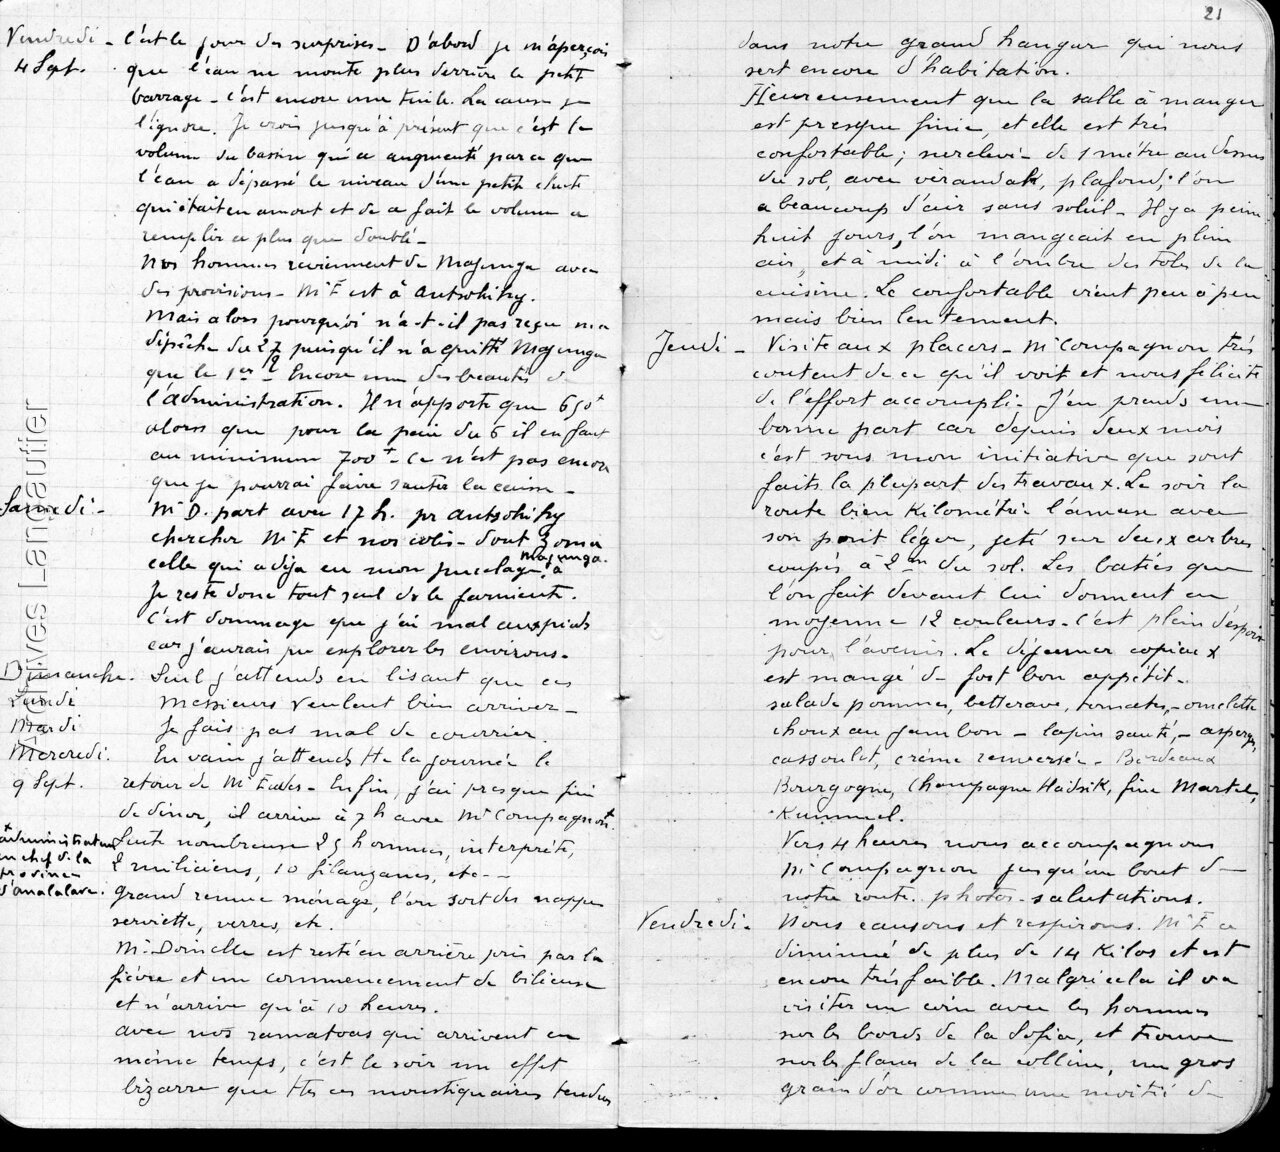 Vendredi - C'est le jour des surprises - D'abord je m'aperçois
4 Sept. que l'eau ne monte plus derrière le petit
barrage - c'est encore une tuile. La cause je
l'ignore. Je crois jusqu'à présent que c'est le
volume du bassin qui a augmenté parce que
l'eau a dépassé le niveau d'une petite chute
qui était en amont et de ce fait le volume a
remplir a plus que doublé -
Nos hommes reviennent de Majunga avec
des provisions - Mr F est à Antsohihy.
Mais alors pourquoi n'a-t-il pas reçu ma
dépêche du 27 puisqu'il n'a quitté Majunga
que le 1er ? Encore une des beautés de
l'administration. Il n'apporte que 650f
alors que pour la paie du 6 il en faut
au minimum 700f - Ce n'est pas encore
que je pourrai faire sauter la caisse -
Samedi - Mr D. part avec 17 h. pr Antsohihy
chercher Mr F et nos colis - dont Zoma
celle qui a déja eu mon pucelage, à Majunga.
Je reste donc tout seul ds le farniente.
C'est dommage que j'ai mal aux pieds
car j'aurais pu explorer les environs -
Dimanche - Seul j'attends en lisant que ces
Lundi Messieurs veulent bien arriver -
Mardi Je fais pas mal de courrier.
Mercredi. En vain j'attends tte la journée le
9 Sept. retour de Mr - Enfin, j'ai presque fini
de diner, il arrive à 7h avec Mr Compagnon+.
+ administrateur en chef de la province d'Analalave.
Suite nombreuse 25 hommes, interprète,
2 miliciens, 10 filanzanes, etc --
grand remue ménage, l'on sort des nappes
serviette, verres, etc.
Mr Doinelle est resté en arrière pris par la
fièvre et un commencement de bilieuse
et n'arrive qu'à 10 heures.
avec nos ramatoas qui arrivent en
même temps, c'est le soir un effet
bizarre que ttes ces moustiquaires tendues
21
dans notre grand hangar qui nous
sert encore d'habitation.
Heureusement que la salle à manger
est presque finie, et elle est très
confortable ; surelevé - de 1 mètre au dessus
du sol, avec vérandah, plafond ; l'on
a beaucoup d'air sans soleil - Il y a peine
huit jours, l'on mangeait en plein
air, et à midi à l'ombre des toles de la
cuisine. Le confortable vient peu à peu
mais bien lentement.
Jeudi - Visite aux placers - Mr Compagnon très
content de ce qu'il voit et nous félicite
de l'effort accompli - J'en prends une
bonne part car depuis deux mois
c'est sous mon initiative que sont
faits la plupart des travaux. Le soir la
route bien kilométrée l'amuse avec
son pont léger, jeté sur deux arbres
coupés à 2m du sol. Les batées que
l'on fait devant lui donnent en
moyenne 12 couleurs - C'est plein d'espoir
pour l'avenir. Le déjeuner copieux
est mangé d- fort bon appétit -
salade pommes, betterave, tomates, - omelette
choux au jambon - lapin sauté, - asperges,
cassoulet, crème renversée - Bordeaux
Bourgogne, Champagne Hidsik, fine Martel,
Kummel.
Vers 4 heures nous accompagnons
Mr Compagnon jusqu'au bout d-
notre route. photos - salutations.
Vendredi - Nous causons et respirons. Mr F a
diminué de plus de 14 Kilos et est
encore très faible. Malgré cela il va
visiter un coin avec les hommes
sur les bords de la Sofia, et trouve
sur les flancs de la colline, un gros
grain d'or comme une moitié d-
Archives Langautier